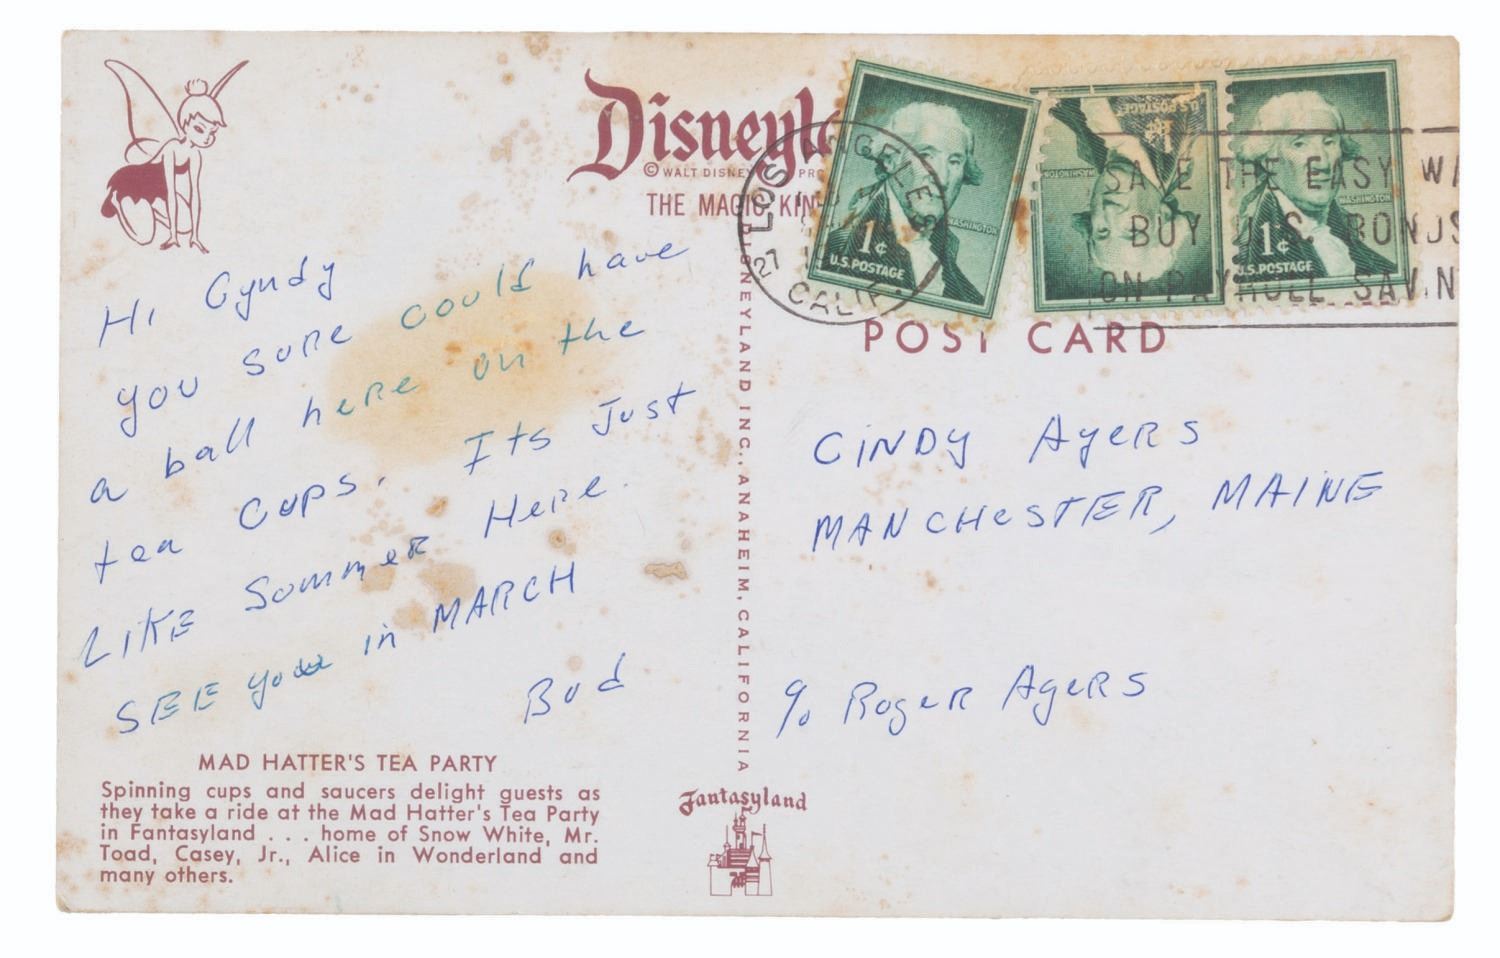 Disneyla
© WALT DISNEY PRO
THE MAGIC KIN
Hi Cyndy
you sure could have
a ball here on the
tea cups. Its Just
LIKE Summer Here.
SEE you in MARCH
Bud
MAD HATTER'S TEA PARTY
Spinning cups and saucers delight guests as
they take a ride at the Mad Hatter's Tea Party
in Fantasyland . . . home of Snow White, Mr.
Toad, Casey, Jr., Alice in Wonderland and
many others.
DISNEYLAND INC., ANAHEIM, CALIFORNIA
Fantasyland
LOS ANGELES
27
CALIF
1¢
U.S. POSTAGE
WASHINGTON
1¢
U.S. POSTAGE
WASHINGTON
1¢
U.S. POSTAGE
WASHINGTON
SAVE THE EASY WA
BUY U.S. BONDS
ON PAYROLL SAVIN
POST CARD
CINDY Ayers
MANCHESTER, MAINE
c/o Roger Ayers